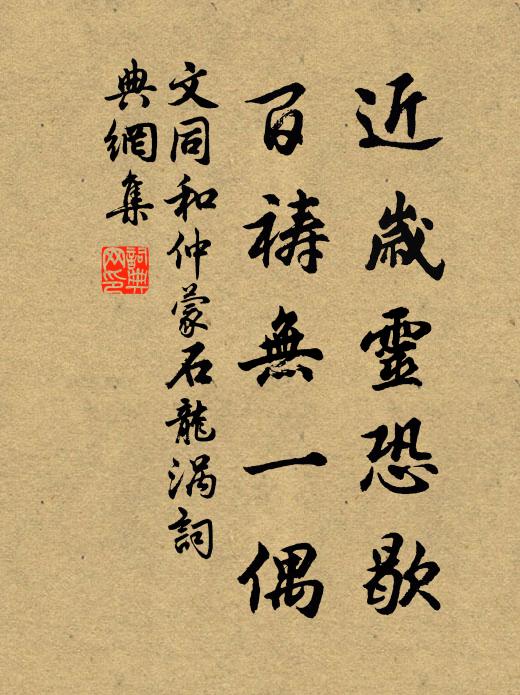 近歲靈恐歇
百禱無一偶
文同和仲蒙石龍涡詞
典網集
詞典網印